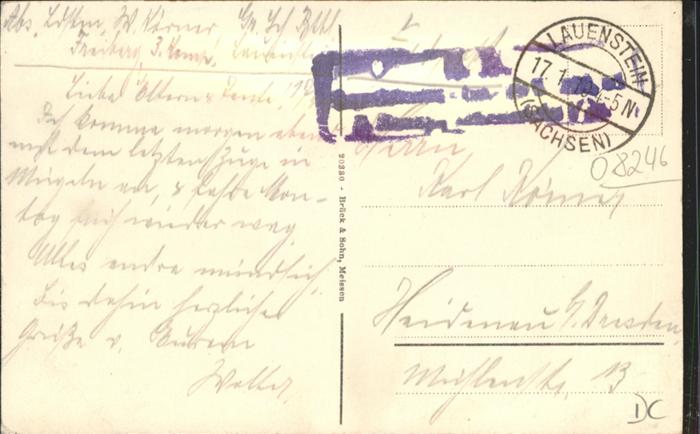 Abs. Ldstm. W. Körner
Freiberg, 3. Komp.
Liebe Eltern & Tante,
Ich komme morgen abend
mit dem letzten Zuge in
Mügeln an, & fahre Mon-
tag früh wieder weg.
Alles andre mündlich,
bis dahin herzliche
Grüße v. Eurem
Walter
20380 - Brück & Sohn, Meissen
LAUENSTEIN
17.1.
4-5 N
(SACHSEN)
08246
Herrn
Karl Körner
Heidenau b. Dresden
Mühlenstr. 13
DC